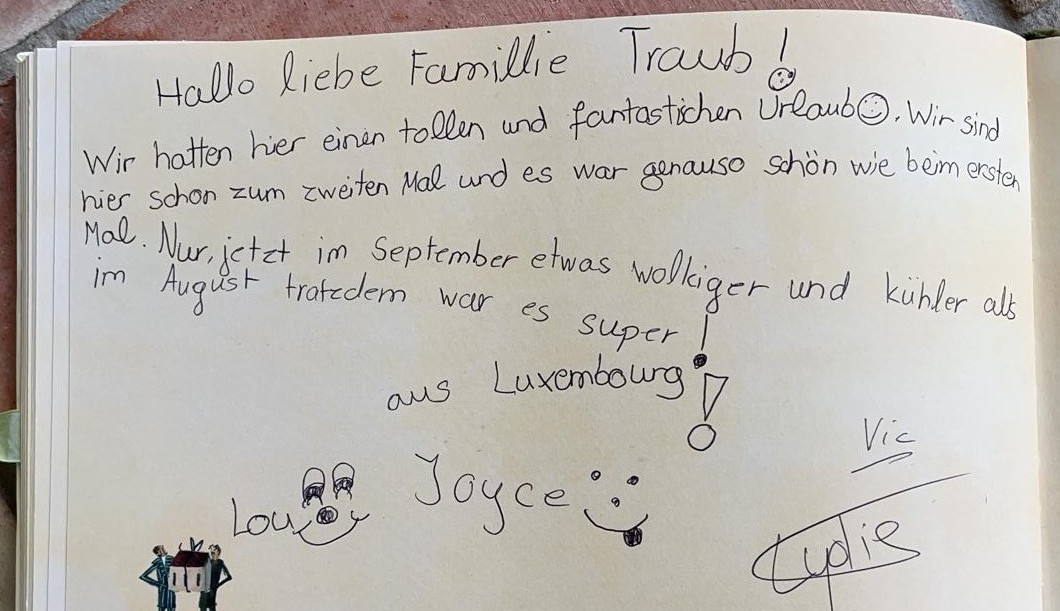 Hallo liebe Famillie Traub!
Wir hatten hier einen tollen und fantastichen Urlaub☺. Wir sind
hier schon zum zweiten Mal und es war genauso schön wie beim ersten
Mal. Nur, jetzt im September etwas wolkiger und kühler als
im August tratzdem war es super!
aus Luxembourg!
Vic
Lou Joyce
Lydie